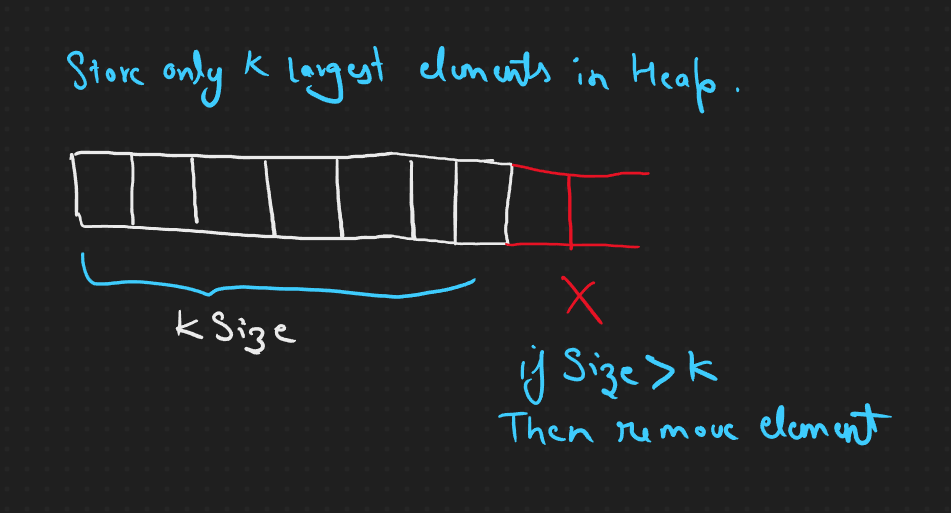 Store only K Largest elements in Heap.
K Size
X
if Size > K
Then remove element